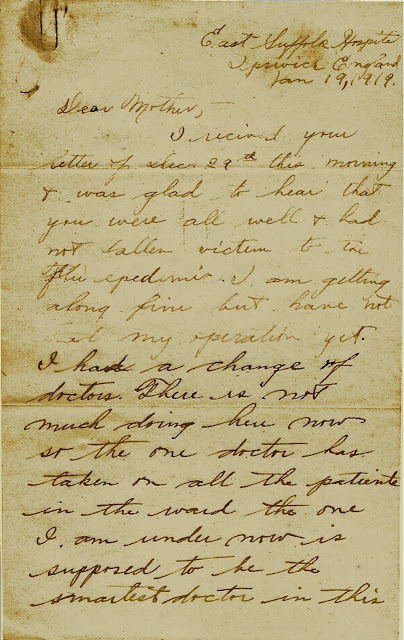 East Suffolk Hospital
Ipswich England
Jan 19, 1919.
Dear Mother,
I recived your
letter of Dec. 29th this morning
& was glad to hear that
you were all well & had
not fallen victim to the
Flu epedemic. I am getting
along fine but have not
my operation yet.
I had a change of
doctors. There is not
much doing here now
so the one doctor has
taken on all the patients
in the ward the one
I am under now is
supposed to be the
smartest doctor in this